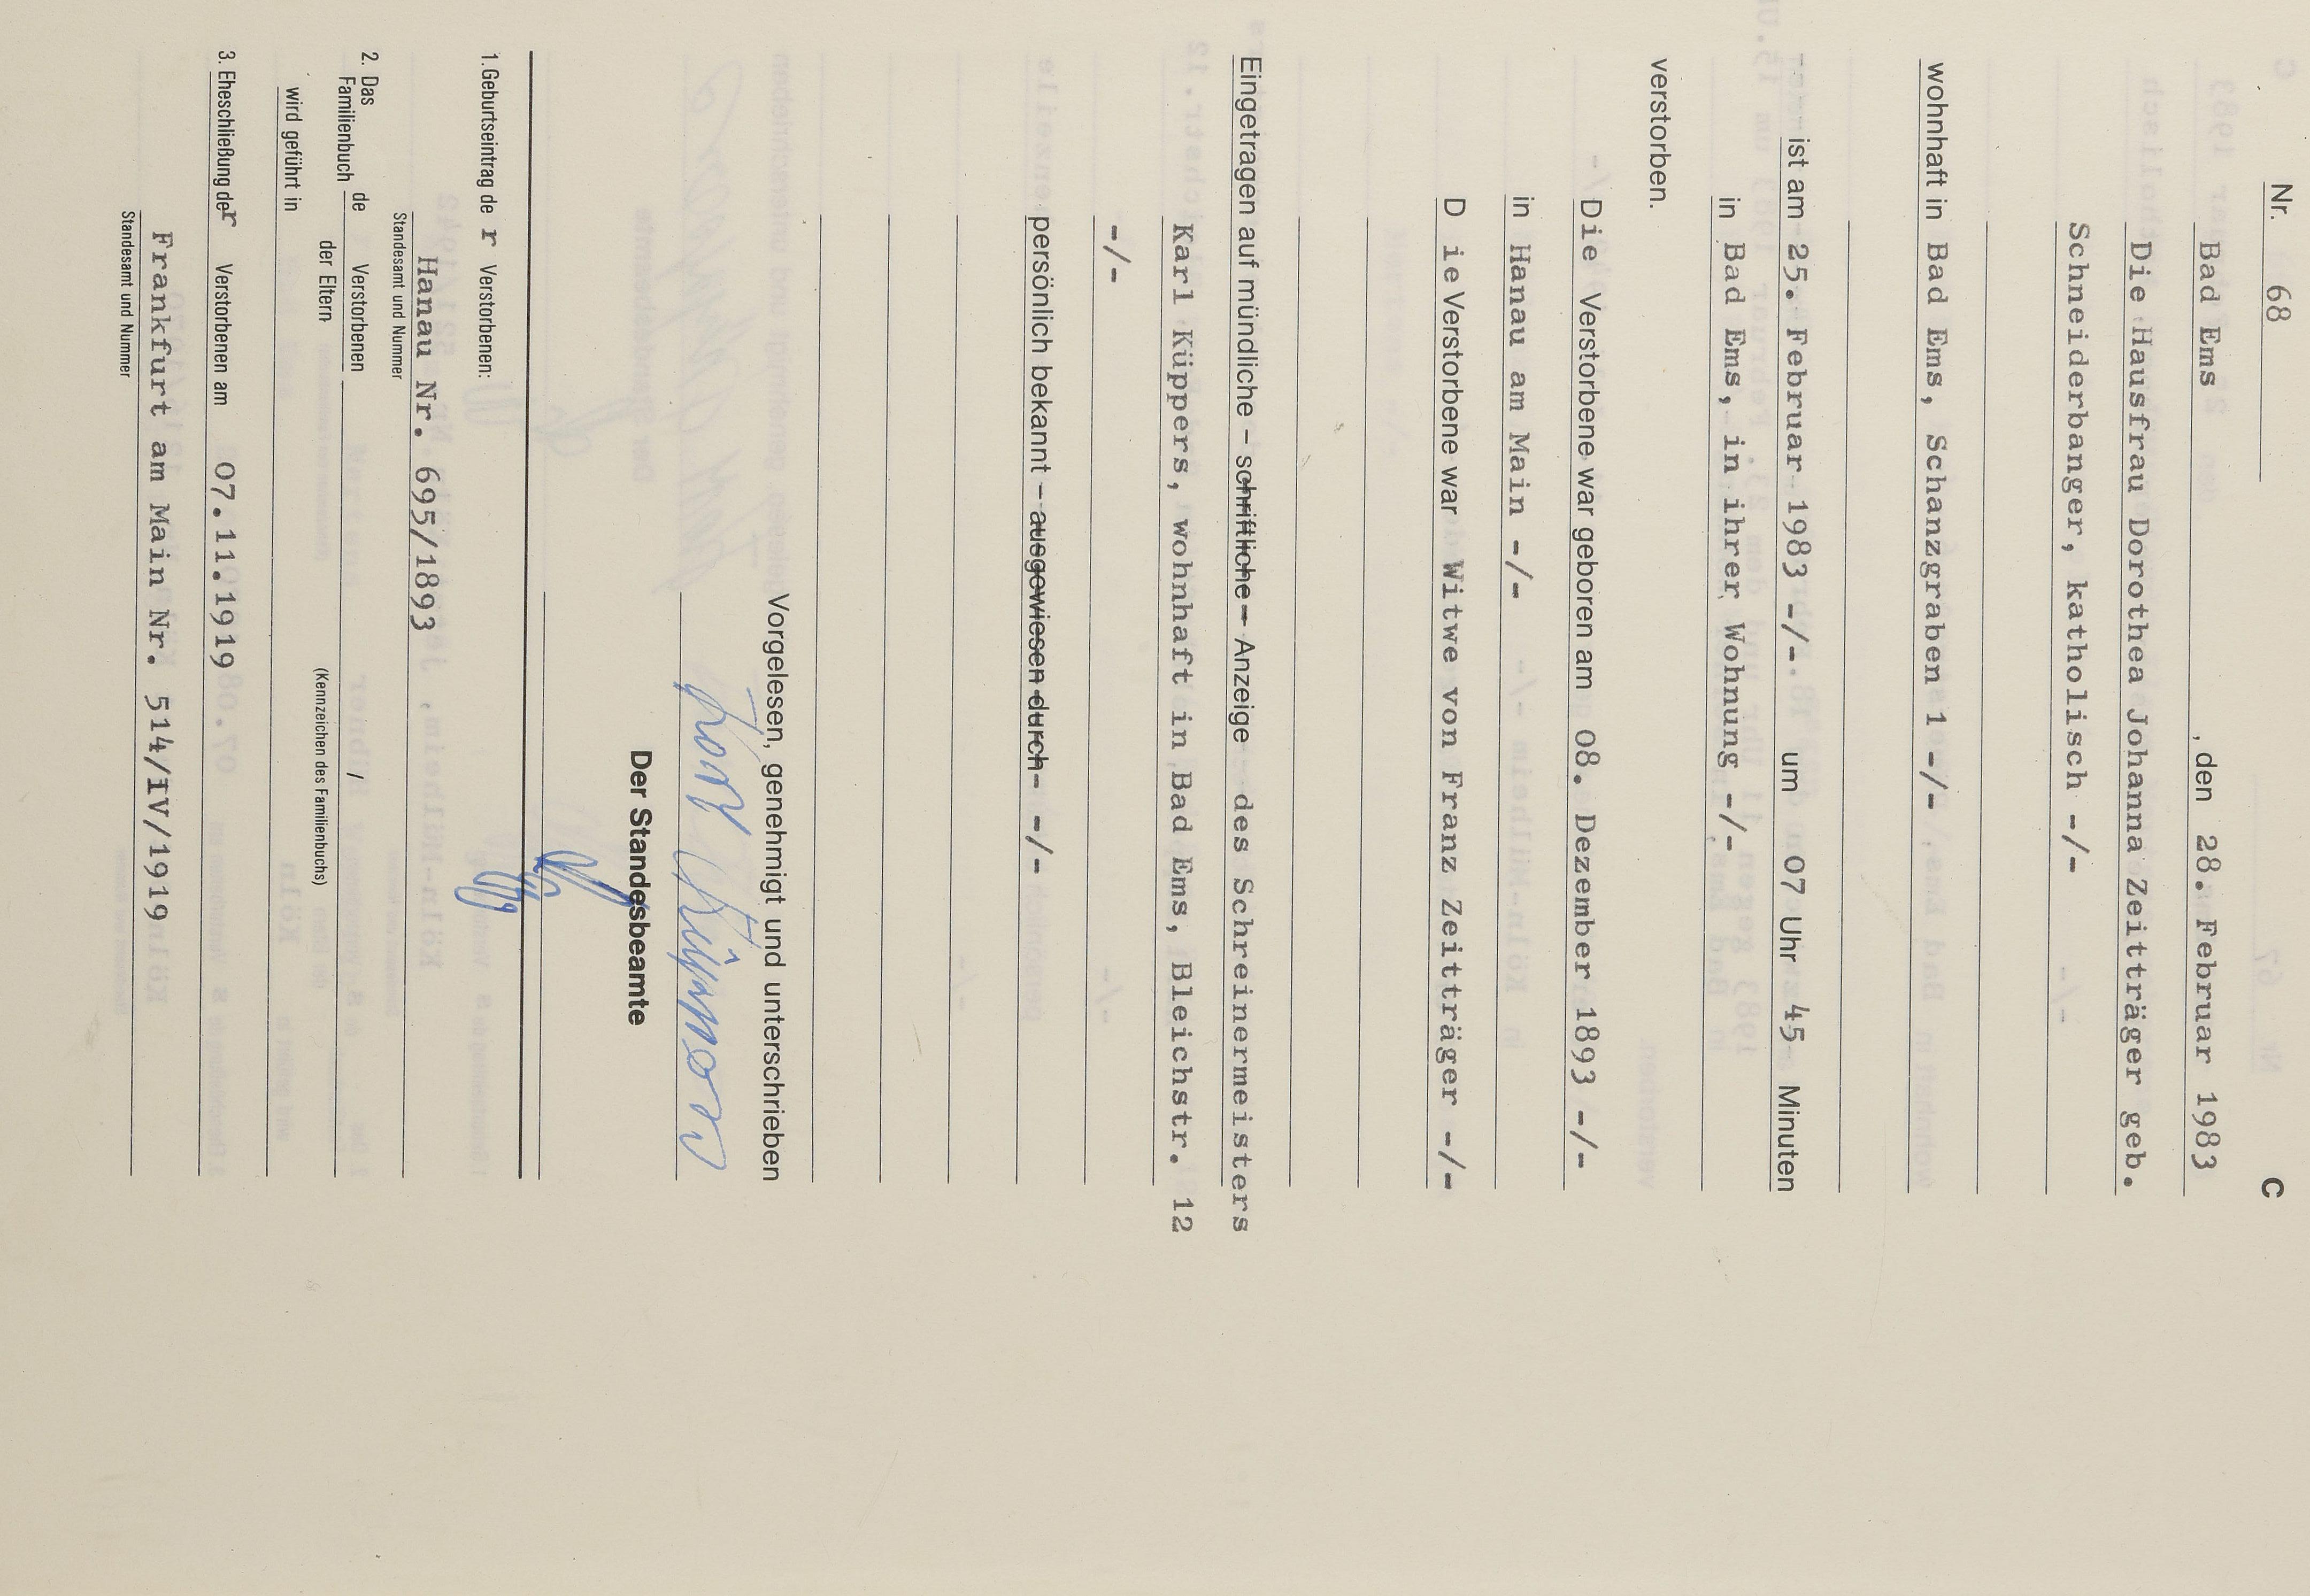 C
Nr. 68
Bad Ems , den 28. Februar 1983
Die Hausfrau Dorothea Johanna Zeitträger geb.
Schneiderbanger, katholisch -/-
wohnhaft in Bad Ems, Schanzgraben 1 -/-
ist am 25. Februar 1983 -/- um 07 Uhr 45 Minuten
in Bad Ems, in ihrer Wohnung -/-
verstorben.
Die Verstorbene war geboren am 08. Dezember 1893 -/-
in Hanau am Main -/-
D ie Verstorbene war Witwe von Franz Zeitträger -/-
Eingetragen auf mündliche – schriftliche – Anzeige des Schreinermeisters
Karl Küppers, wohnhaft in Bad Ems, Bleichstr. 12
-/-
persönlich bekannt – ausgewiesen durch – -/-
Vorgelesen, genehmigt und unterschrieben
Karl Küppers
Der Standesbeamte
1. Geburtseintrag de r Verstorbenen:
Hanau Nr. 695/1893
Standesamt und Nummer
2. Das Familienbuch de Verstorbenen /
der Eltern (Kennzeichen des Familienbuchs)
wird geführt in
3. Eheschließung der Verstorbenen am 07.11.1919
Frankfurt am Main Nr. 514/IV/1919
Standesamt und Nummer